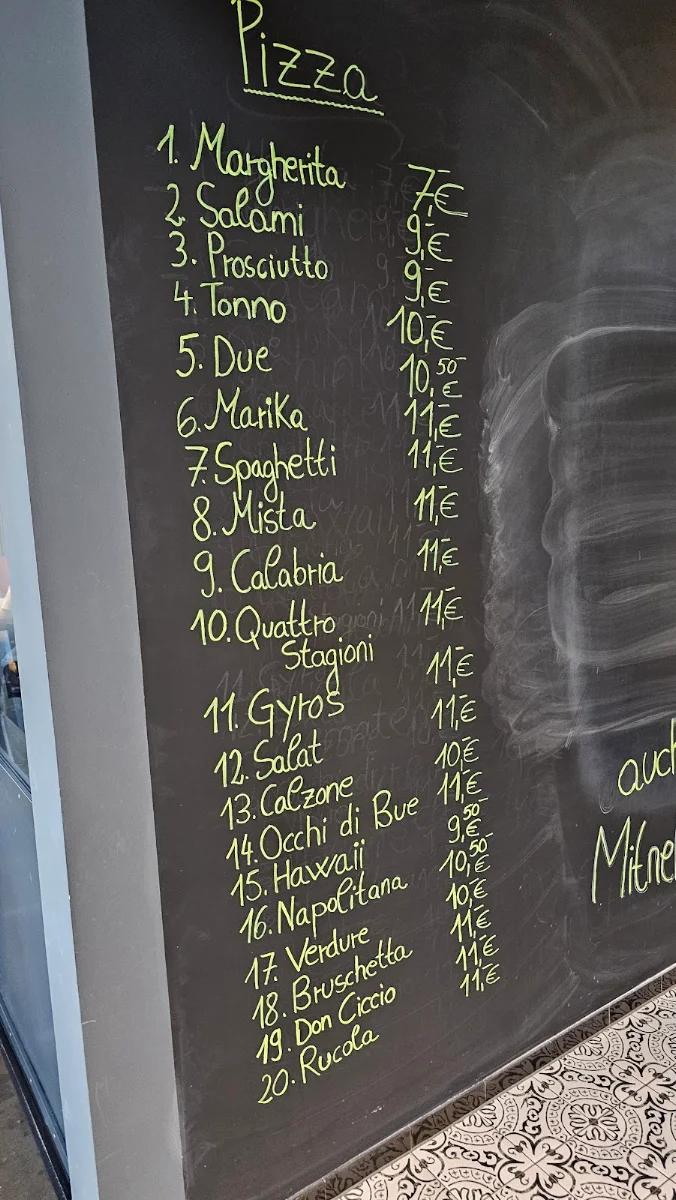 Pizza
1. Margherita 7,-€
2. Salami 9,-€
3. Prosciutto 9,-€
4. Tonno 10,-€
5. Due 10,50€
6. Marika 11,-€
7. Spaghetti 11,-€
8. Mista 11,-€
9. Calabria 11,-€
10. Quattro 11,-€
Stagioni
11. Gyros 11,-€
12. Salat 11,-€
13. Calzone 10,-€
14. Occhi di Bue 11,-€
15. Hawaii 9,50€
16. Napolitana 10,50€
17. Verdure 10,-€
18. Bruschetta 11,-€
19. Don Ciccio 11,-€
20. Rucola 11,-€
auch